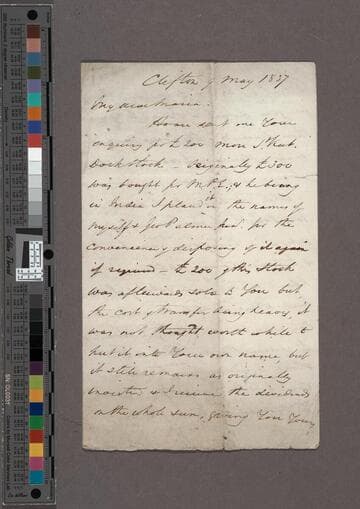 Clifton 9 May 1837
My dear Maria
Home sent me Your
enquiry for £200 more St. Kat.
Dock Stock - Originally £300
was bought for Mr. P. E, & he being
in India I placed it in the names of
myself & for the
convenience of disposing of it again
if required - £200 of this Stock
was afterwards sold to You but
the cost of transfer being heavy, it
was not thought worth while to
put it into Your own name, but
it still remains as originally
invested & I receive the dividends
on the whole sum, giving You Your